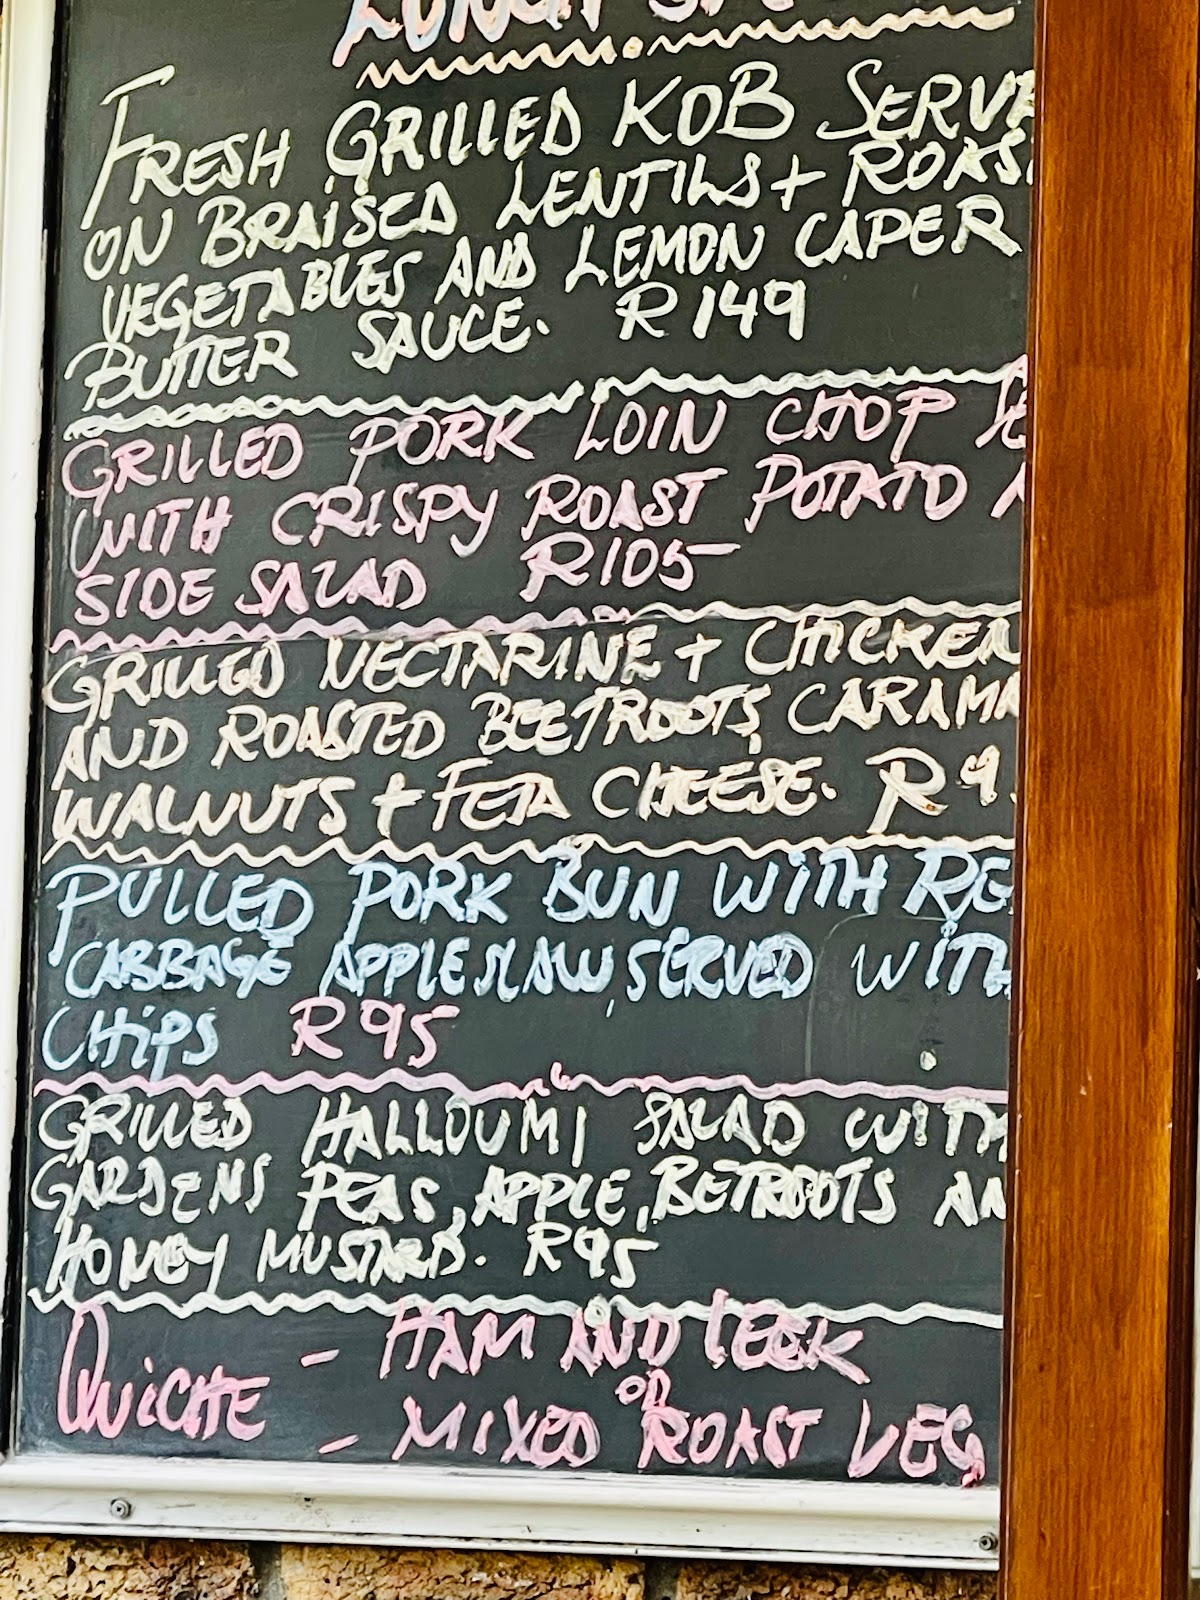 LUNCH SP
FRESH GRILLED KOB SERVE
ON BRAISED LENTILS + ROAS
VEGETABLES AND LEMON CAPER
BUTTER SAUCE. R149
GRILLED PORK LOIN CHOP SE
WITH CRISPY ROAST POTATO
SIDE SALAD R105
GRILLED NECTARINE + CHICKEN
AND ROASTED BEETROOTS, CARAM
WALNUTS + FETA CHEESE. R9
PULLED PORK BUN WITH RE
CABBAGE APPLE SLAW, SERVED WITH
CHIPS R95
GRILLED HALLOUMI SALAD WITH
GARDENS PEAS, APPLE, BETROOTS AN
HONEY MUSTARD. R95
QUICHE - HAM AND LEEK
OR
- MIXED ROAST VEG